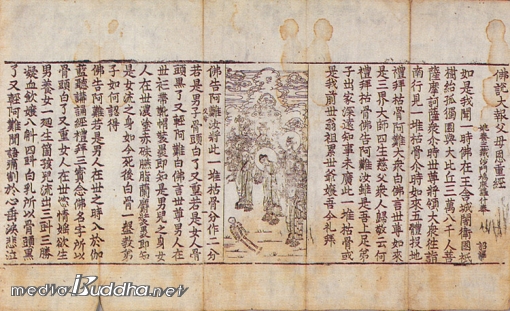 佛說大報父母恩重經
姚秦三藏法師鳩摩羅什奉 詔譯
如是我聞一時佛在王舍城衛國祇
樹給孤獨園與大比丘三万八千人菩
薩摩訶薩衆尒時世尊將領大衆往詣
南行見一堆枯骨尒時如來五體投地
禮拜枯骨阿難大衆白佛言世尊如來
是三界大師四生慈父衆人歸敬云何
禮拜枯骨佛告阿難汝雖是吾上足弟
子出家深遠知事未廣此一堆枯骨或
是我前世翁祖累世爺孃吾今禮拜
佛告阿難汝將此一堆枯骨分作二分
若是男子骨頭白了又重若是女人骨
頭黑了又輕阿難白佛言世尊男人在
世衫帶鞋裝裹即知是男兒之身女
人在世濃塗赤硃臙脂蘭麝裝裹即知
是女流之身如今死後白骨一般教弟
子如何認得
佛告阿難若是男人在世之時入於伽
藍聽講誦經禮拜三寶念佛名字所以
骨頭白了又重女人在世恣情婬欲生
男養女一廻生箇孩兒流出三斗三勝
凝血飲孃八斛四斗白乳所以骨頭黑
了又輕阿難聞語痛割於心垂淚悲泣
mediaBuddha.net